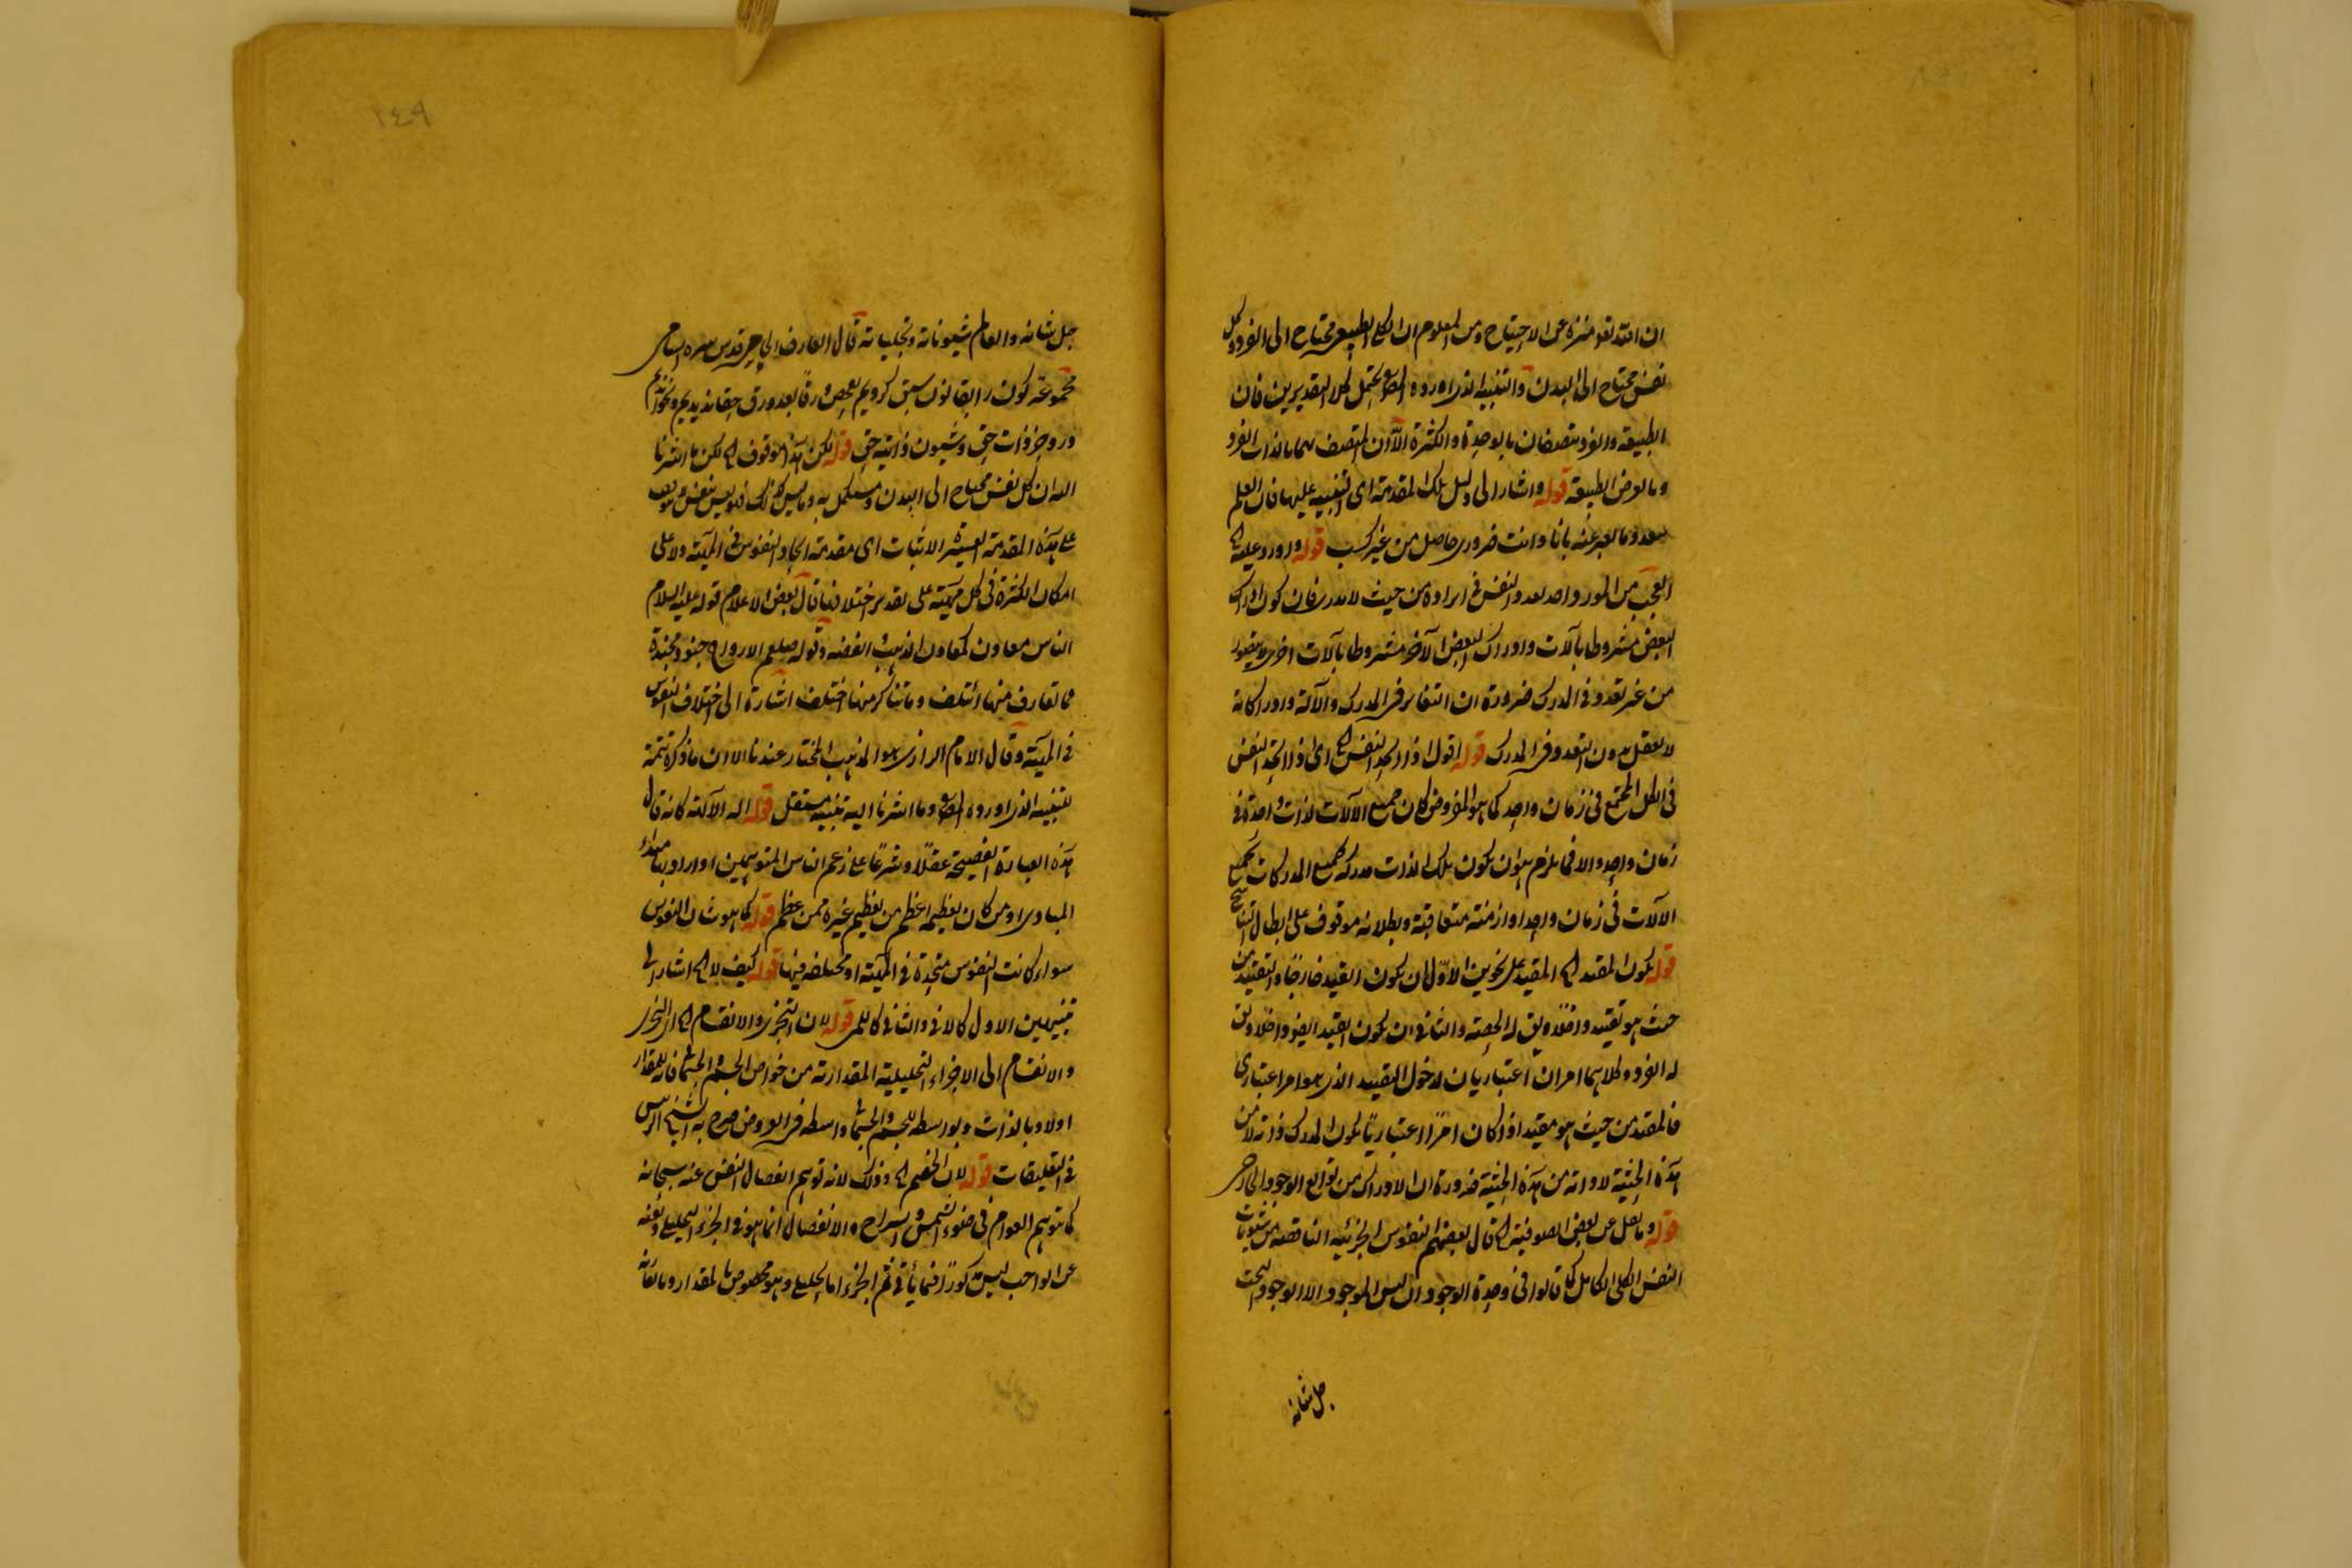 ان الله تعه منزه عن الاحتياج ومن المعلوم ان الكلي الطبيعي محتاج الى الفرد وكل
نفس محتاج الى البدن والتنبيه الذي اورده المص يحتمل كلا التقديرين فان
الطبيعة والفرد متصفان بالوحدة والكثرة الا ان المتصف بهما بالذات الفرد
وبالعرض الطبيعة قوله واشار الى دليل تلك المقدمة اى التنبيه عليها فان العلم
بعدد ما يعبر عنه بانا وانت ضروري حاصل من غير كسب قوله واورد عليه الخ
العجب من المورد انه بعدد النفس في ايراده من حيث لا يدري فان كون ادراك
البعض مشروطا بآلات وادراك البعض الآخر مشروطا بآلات اخرى لا يتصور
من غير تعدد في المدرك ضرورة ان التغاير في المدرك والآلة وادراكاته
لا يعقل بدون التعدد في المدرك قوله اقول اذا اتحد النفس الخ اى اذا اتحد النفس
في الكل المجتمع في زمان واحد كما هو المفروض كان جميع الآلات لذات واحدة في
زمان واحد والا فما يلزم هو ان يكون تلك الذات مدركة لجميع المدركات بجميع
الآلات في زمان واحد او ازمنة متعاقبة وبطلانه موقوف على ابطال التناسخ
قوله يكون المقيد الخ المقيد على نحوين الاول ان يكون القيد خارجا والتقييد من
حيث هو تقييد داخلا ويق له الحصة والثاني ان يكون القيد ايضا داخلا ويق
له الفرد وكلاهما امران اعتباريان لدخول التقييد الذي هو امر اعتباري
فالمقيد من حيث هو مقيد اذا كان امرا اعتباريا يكون المدرك ذاته لا من
هذه الحيثية لا ذاته من هذه الحيثية ضرورة ان الادراك من توابع الوجود الخارجي
قوله وما نقل عن بعض الصوفية الخ قال بعضهم النفوس الجزئية الناقصة من شيونات
النفس الكلي الكامل كما قالوا في وحدة الوجود ان ليس الموجود الا الوجود البحت
جل شانه
٢٤٩
جل شانه والعالم شيوناته وتجلياته قال العارف الجامي قدس سره السامي
مجموعه كون را بقانون سبق كرديم تصفح ورقا بعد ورق حقا نديديم ونخوانديم
درو جز ذات حق وشيون ذاتيه حق قوله لكن هذا موقوف الخ لكن ما اشرنا
اليه ان كل نفس محتاج الى البدن ومستكمل به وما ليس كذلك فليس بنفس موقوف
على هذه المقدمة العسيرة الاثبات اى مقدمة اتحاد النفوس في المهية ولا على
امكان الكثرة في كل مهية على تقدير اختلافها قال بعض الاعلام قوله عليه السلام
الناس معادن كمعادن الذهب والفضة وقوله صلعم الارواح جنود مجندة
فما تعارف منها ائتلف وما تناكر منها اختلف اشارة الى اختلاف النفوس
في المهية وقال الامام الرازي هو المذهب المختار عندنا الا ان ما ذكره تتمة
لتنبيه الذي اورده المص وما اشرنا اليه تنبيه مستقل قوله اله الآلهة كانه قال
هذه العبارة الفصيحة عقلا وشرعا على زعم اناس المتوهمين او اراد بها مبداء
المبادي او من كان تعظيمه اعظم من تعظيم غيره ممن عظم قوله كما هو شان النفوس
سواء كانت النفوس متحدة في المهية او مختلفة فيها قوله كيف لا الخ اشار الى
تنبيهين الاول كالاني والثاني كاللمي قوله لان التجزي والانقسام الخ اى التجزي
والانقسام الى الاجزاء التحليلية المقدارية من خواص الجسم والجسماني فانه للمقدار
اولا وبالذات وبواسطة للجسم والجسماني واسطة في العروض صرح به الشيخ الرئيس
في التعليقات قوله لان الخصم الخ وذلك لانه توهم انفصال النفس عنه سبحانه
كما توهم العوام في ضوء الشمس والسراج والانفصال انما هو في الجزء التحليلي ونفيه
عن الواجب ليس مذكورا فيما يأتي ثم الجزء اما تحليلي وهو مخصوص بالمقدار وما يقارنه